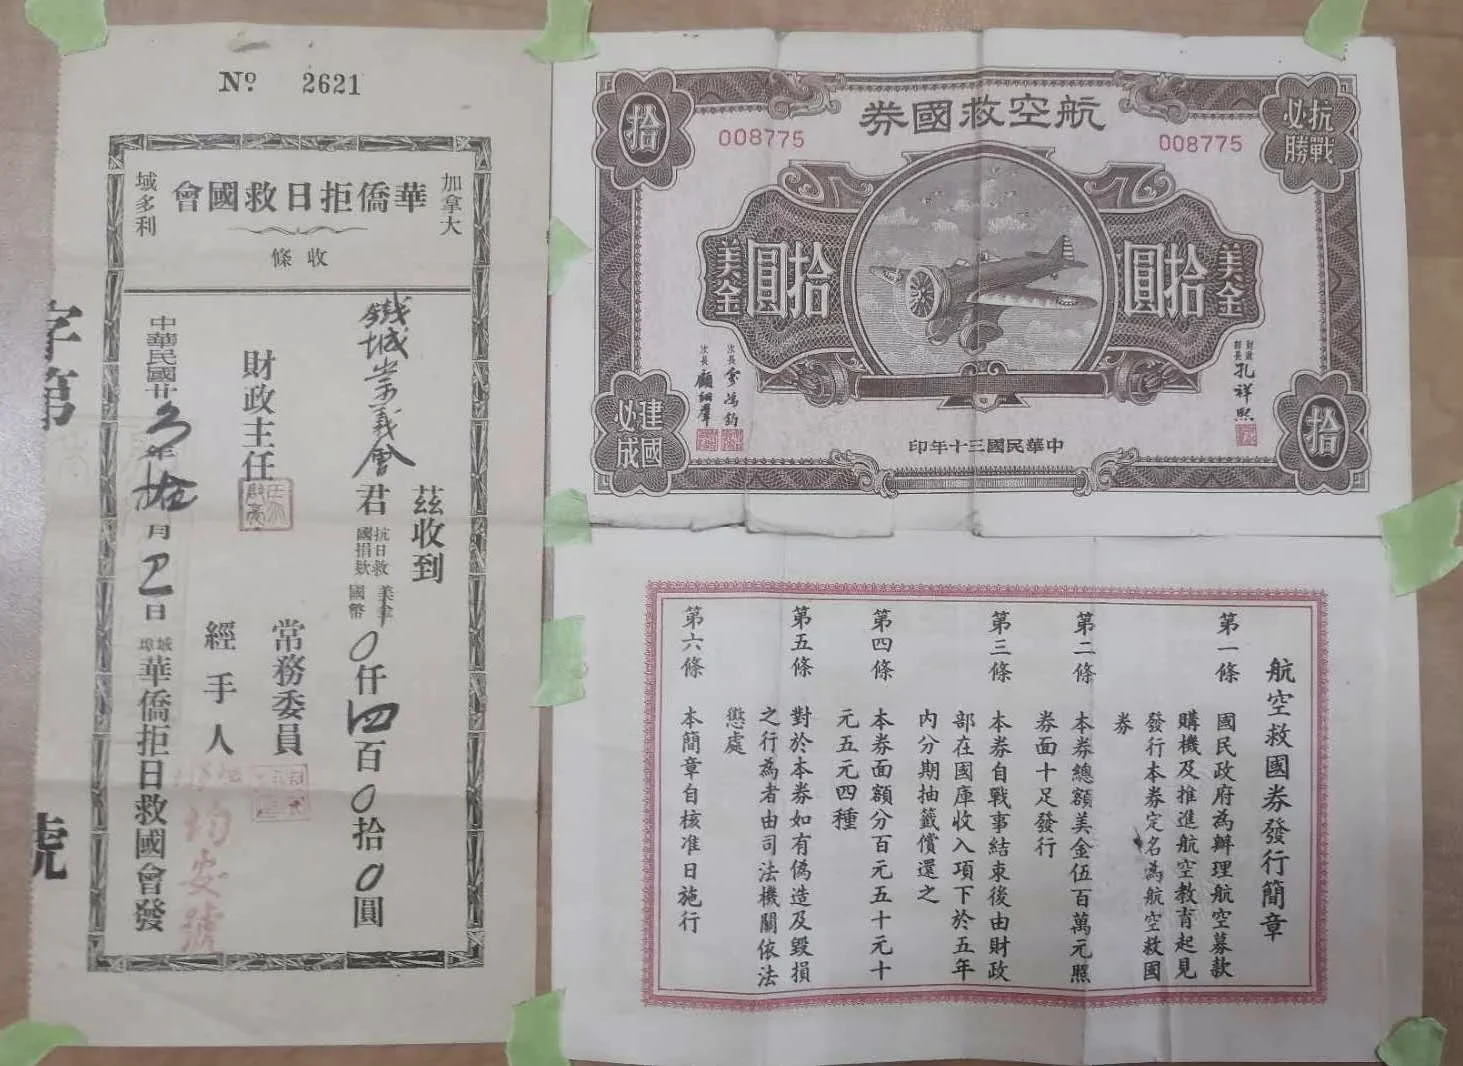 Nº 2621
加拿大
華僑拒日救國會
域多利
收條
茲收到
鐵城崇義會君抗日救國捐款美拿國幣0仟四百0拾0圓
常務委員
財政主任
經手人
均安號
中華民國廿年拾月日
域埠華僑拒日救國會發
字第
號
航空救國券
008775
008775
拾
抗戰必勝
美金
拾圓
拾圓
美金
財政部長孔祥熙
次長
次長顧翊羣
建國必成
拾
中華民國三十年印
航空救國券發行簡章
第一條 國民政府為辦理航空募款
購機及推進航空教育起見
發行本券定名為航空救國
券
第二條 本券總額美金伍百萬元照
券面十足發行
第三條 本券自戰事結束後由財政
部在國庫收入項下於五年
內分期抽籤償還之
第四條 本券面額分百元五十元十
元五元四種
第五條 對於本券如有偽造及毀損
之行為者由司法機關依法
懲處
第六條 本簡章自核准日施行